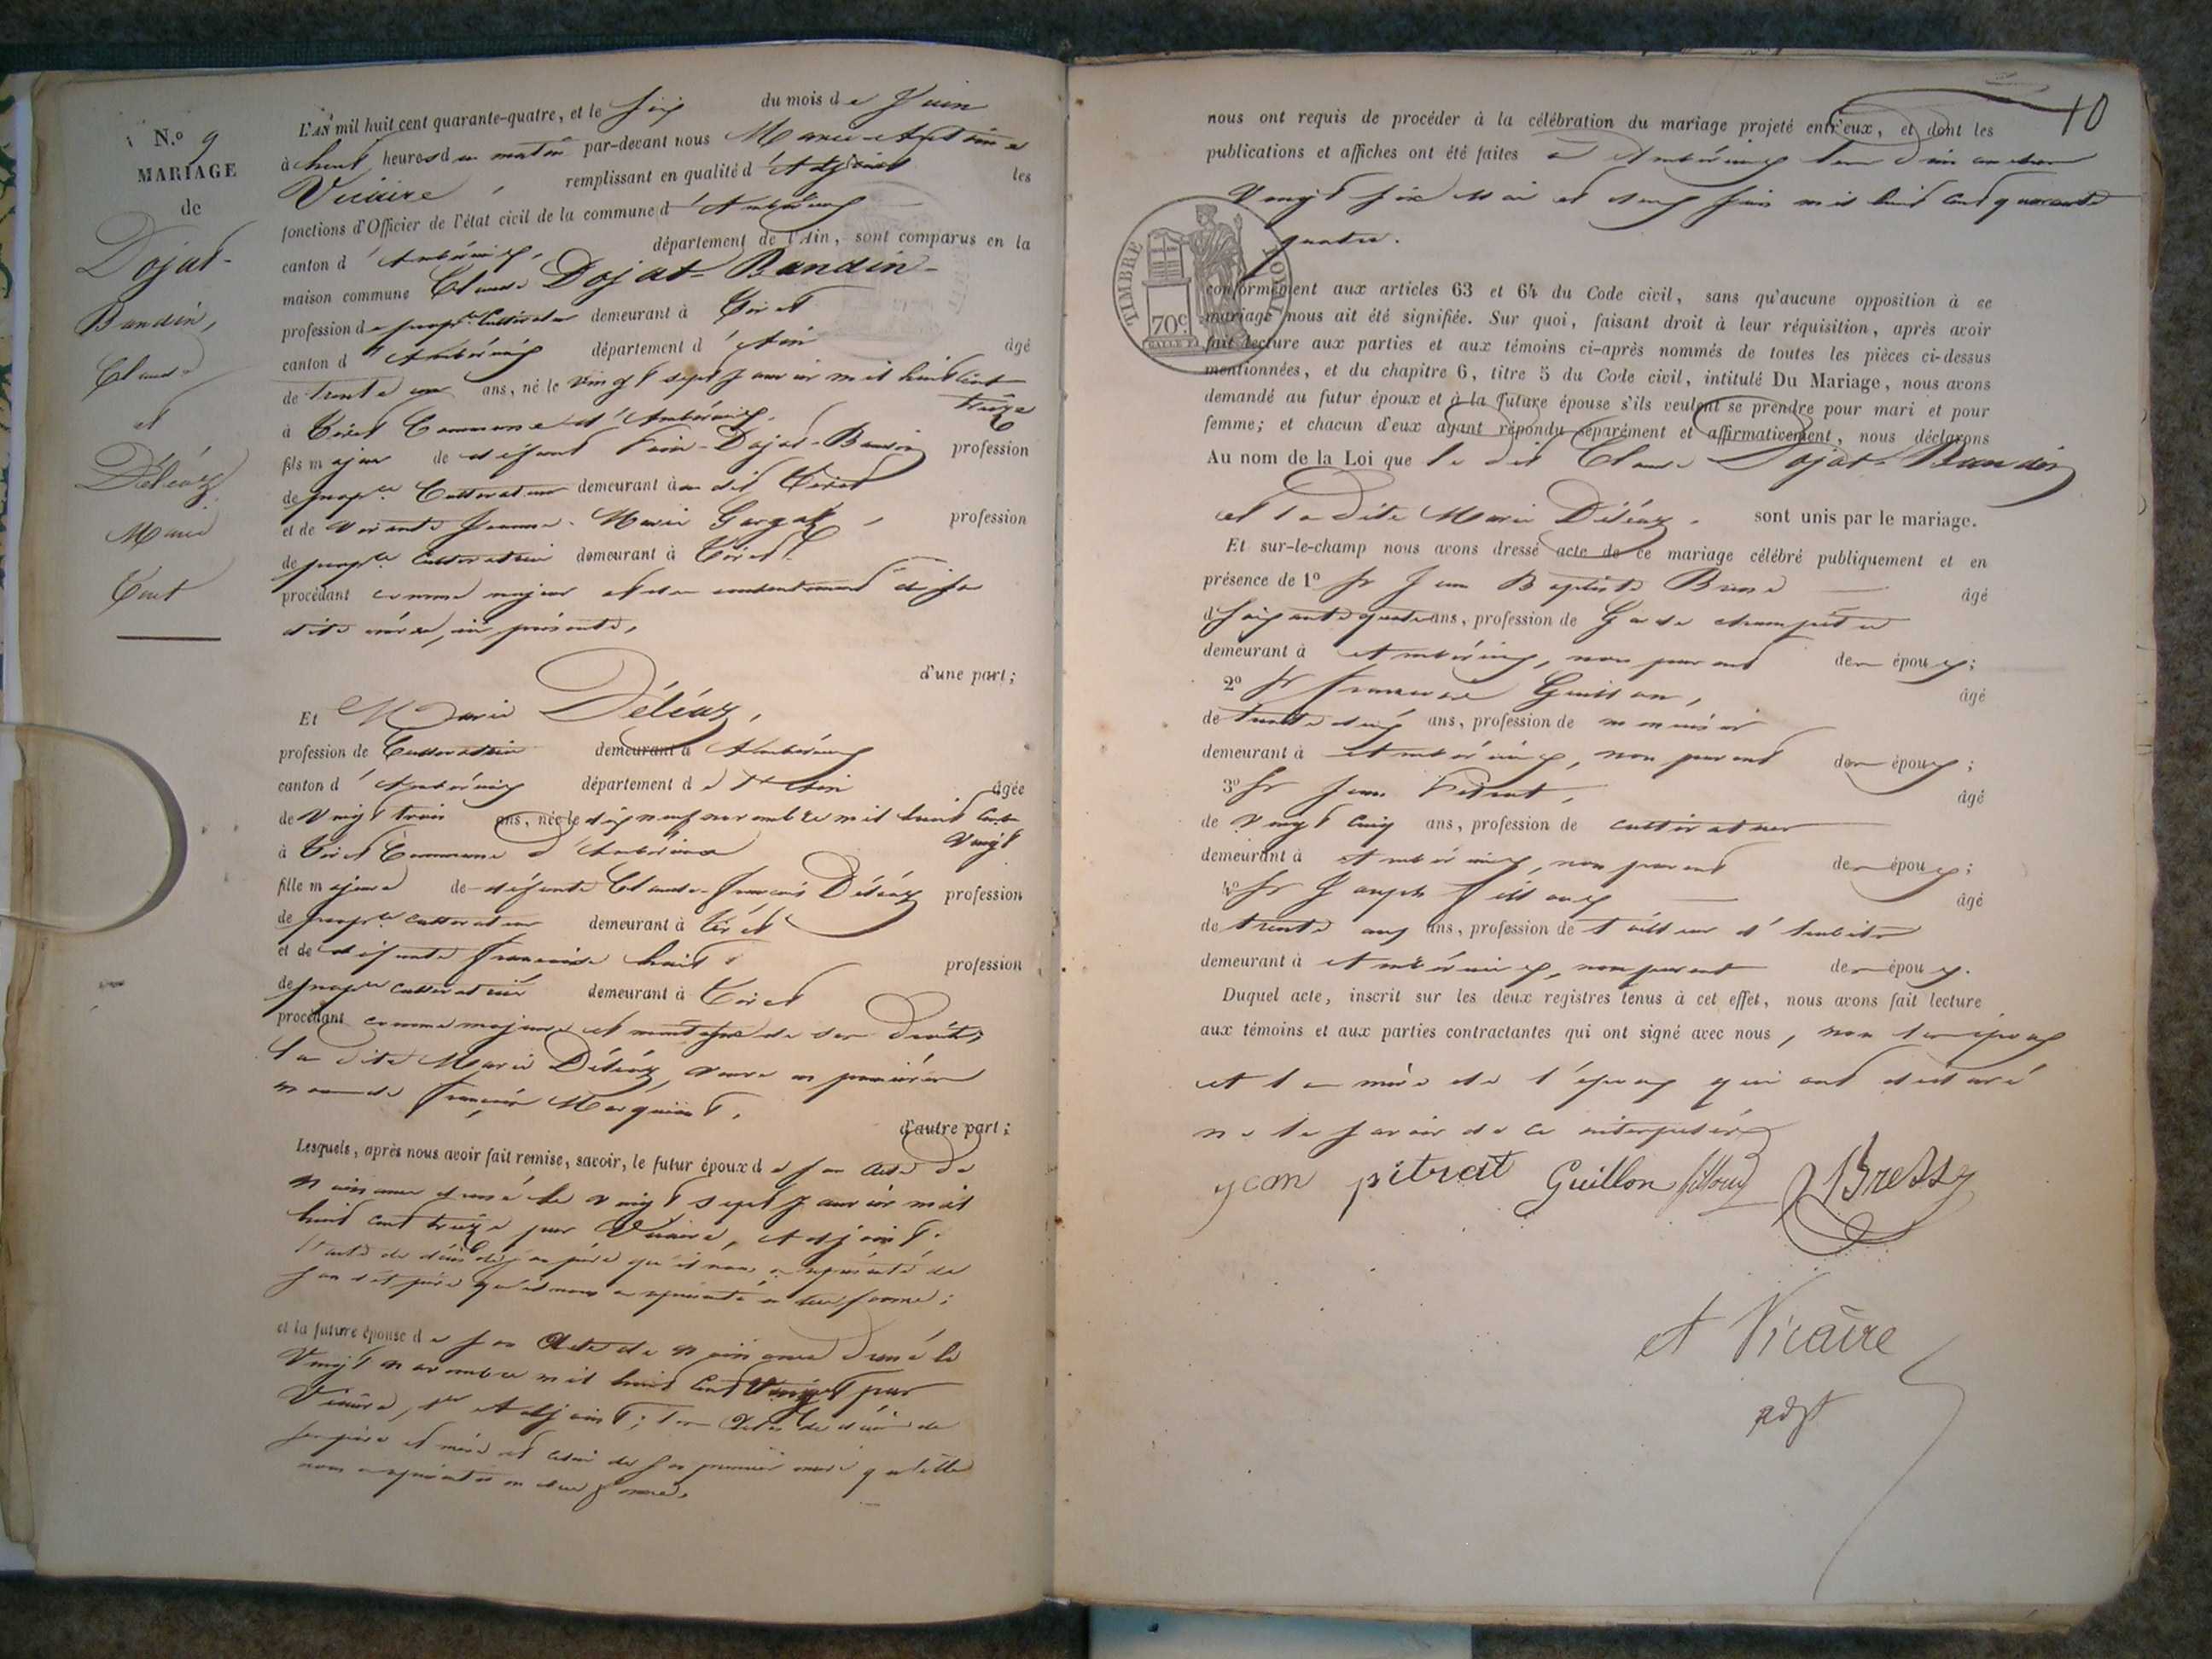 N.º 9
MARIAGE
de
Dojat-
Bandin,
Claude
et
Déléaz
Marie
L'AN mil huit cent quarante-quatre, et le six du mois de Juin
à huit heures du matin par-devant nous Marie-Antoine
Vicaire, remplissant en qualité d'Adjoint les
fonctions d'Officier de l'état civil de la commune d'Ambérieux
canton d'Ambérieux, département de l'Ain, sont comparus en la
maison commune Claude Dojat-Bandin-
profession de propre. Cultivateur demeurant à Tiret
canton d'Ambérieux département d'Ain âgé
de trente un ans, né le vingt sept janvier mil huit cent
treize
à Tiret Commune d'Ambérieux.
fils majeur de défunt Dojat-Bandin profession
de propre. Cultivateur demeurant au dit Tiret
et de vivante Jeanne-Marie profession
de propre. cultivatrice demeurant à Tiret.
procédant comme majeur et du consentement de sa
dite mère, ici présente,
d'une part;
Et Marie Déléaz,
profession de Cultivatrice demeurant à Ambérieux
canton d'Ambérieux département de l'Ain âgée
de vingt trois ans, née le dix neuf novembre mil huit cent
vingt
à Tiret Commune d'Ambérieux
fille majeure de défunte Claude-François Déléaz profession
de propre. cultivateur demeurant à Tiret
et de défunte Françoise profession
de propre. cultivatrice demeurant à Tiret
procédant comme majeure et maîtresse de ses droits,
la dite Marie Déléaz, veuve en premières
noces de François Marquint.
d'autre part;
Lesquels, après nous avoir fait remise, savoir, le futur époux de son acte de
naissance dressé le vingt sept janvier mil
huit cent treize par Vicaire, Adjoint.
l'acte de décès de son père qu'il nous a représenté de
son dit père qu'il nous a représenté en due forme;
et la future épouse de son Acte de naissance dressé le
vingt novembre mil huit cent vingt par
Vicaire, 1er Adjoint; les Actes de décès de
ses père et mère et celui de son premier mari qu'elle
nous a représentés en due forme.
10
nous ont requis de procéder à la célébration du mariage projeté entr'eux, et dont les
publications et affiches ont été faites à Ambérieux les dimanches
vingt six Mai et deux juin mil huit cent quarante
quatre.
TIMBRE ROYAL
70c.
conformément aux articles 63 et 64 du Code civil, sans qu'aucune opposition à ce
mariage nous ait été signifiée. Sur quoi, faisant droit à leur réquisition, après avoir
fait lecture aux parties et aux témoins ci-après nommés de toutes les pièces ci-dessus
mentionnées, et du chapitre 6, titre 5 du Code civil, intitulé Du Mariage, nous avons
demandé au futur époux et à la future épouse s'ils veulent se prendre pour mari et pour
femme; et chacun d'eux ayant répondu séparément et affirmativement, nous déclarons
Au nom de la Loi que le dit Claude Dojat-Bandin
et la dite Marie Déléaz, sont unis par le mariage.
Et sur-le-champ nous avons dressé acte de ce mariage célébré publiquement et en
présence de 1º Sr Jean Baptiste âgé
de soixante quatre ans, profession de Garde champêtre
demeurant à Ambérieux, non parent des époux;
2º Sr François Guillon, âgé
de trente deux ans, profession de menuisier
demeurant à Ambérieux, non parent des époux;
3º Sr Jean Pitrat, âgé
de vingt cinq ans, profession de cultivateur
demeurant à Ambérieux, non parent des époux;
4º Sr Joseph âgé
de trente ans, profession de tailleur d'habits
demeurant à Ambérieux, non parent des époux.
Duquel acte, inscrit sur les deux registres tenus à cet effet, nous avons fait lecture
aux témoins et aux parties contractantes qui ont signé avec nous, non les époux
et la mère de l'époux qui ont déclaré
ne le savoir de ce interpellés
jean pitrat Guillon
A Vicaire
adjt